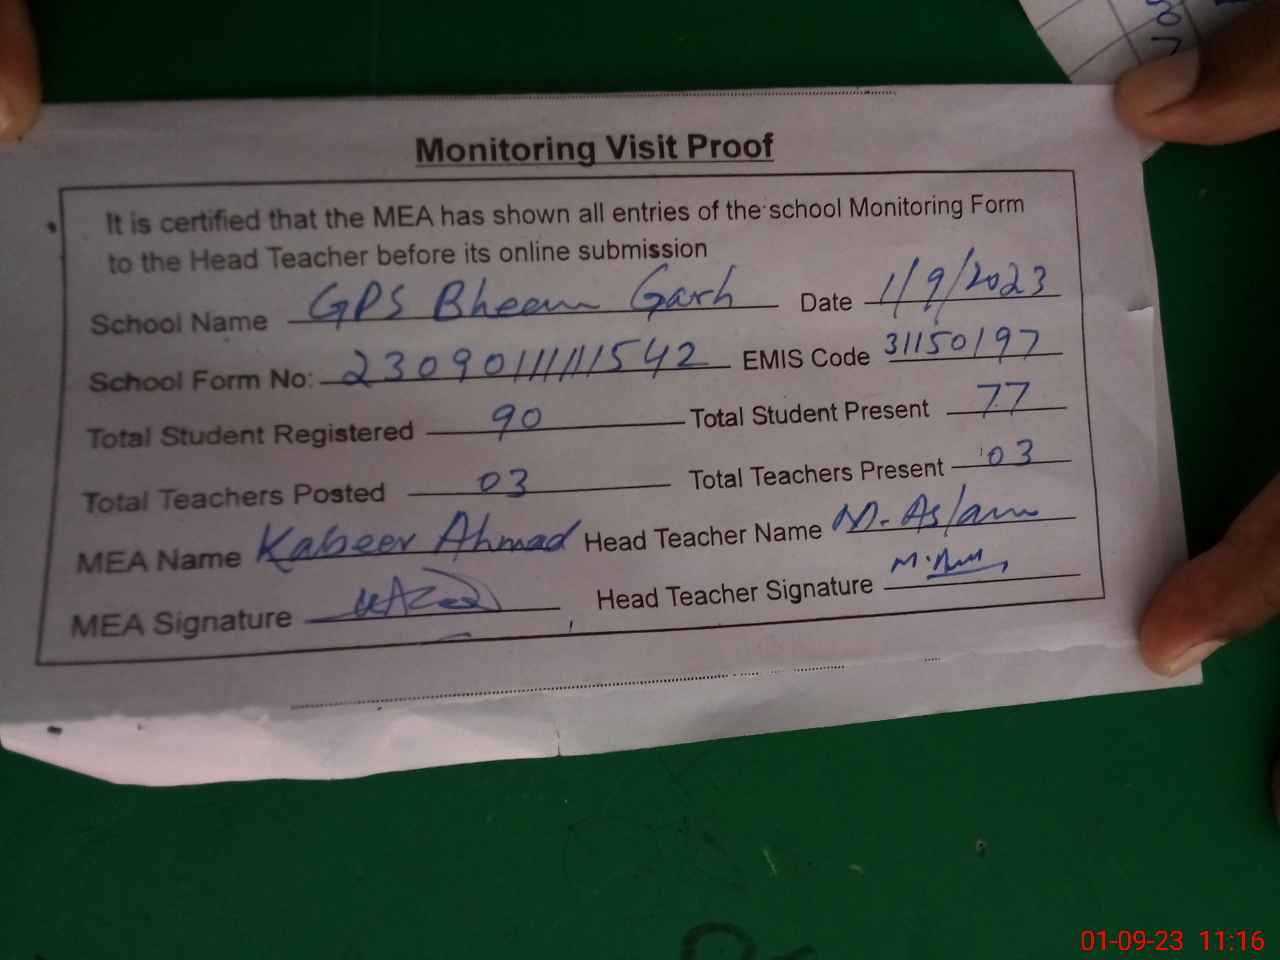 Monitoring Visit Proof
It is certified that the MEA has shown all entries of the school Monitoring Form
to the Head Teacher before its online submission
School Name GPS Bheem Garh Date 1/9/2023
School Form No: 2309011111542 EMIS Code 31150197
Total Student Registered 90 Total Student Present 77
Total Teachers Posted 03 Total Teachers Present 03
MEA Name Kabeer Ahmad Head Teacher Name M. Aslam
MEA Signature Head Teacher Signature
01-09-23 11:16